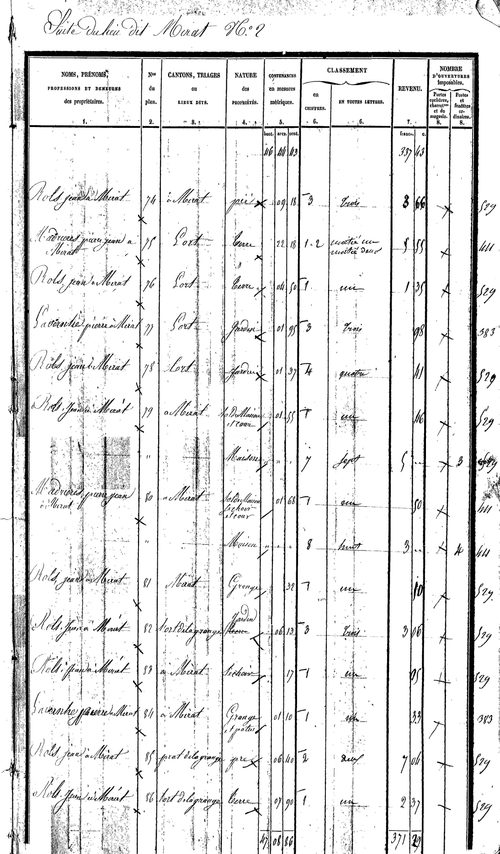 Suite du lieu dit Mirat N.º 2
NOMS, PRÉNOMS, PROFESSIONS ET DEMEURE des propriétaires. Nos du plan. CANTONS, TRIAGES ou LIEUX DITS. NATURE des PROPRIÉTÉS. CONTENANCES en mesures métriques. CLASSEMENT en CHIFFRES. EN TOUTES LETTRES. REVENU. NOMBRE D'OUVERTURES imposables. Portes cochères, charretières et de magasin Portes et fenêtres ordinaires.
1. 2. 3. 4. 5. 6. 6. 7. 8. 8.
hect. ares. cent. francs. c.
46 46 03 337 43
Rols, jean à Mirat 74 à Mirat pré 09 18 3 trois 3 66 529
pierre jean à Mirat 75 Lort terre 22 18 1-2 moitié un moitié deux 5 55 411
Rols, jean à Mirat 76 Lort terre 04 50 1 un 1 35 529
pierre à Mirat 77 Lort Jardin 01 95 3 trois 98 383
Rols jean à Mirat 78 Lort Jardin 01 37 4 quatre 41 529
Rols jean à Mirat 79 à Mirat Maison et cour 01 55 1 un 46 529
" " Maison " " 7 sept 5 .. 3 529
pierre jean à Mirat 80 à Mirat Maison séchoir et cour 01 68 1 un 50 411
" " Maison " " 8 huit 3 .. 4 411
Rols, jean à Mirat 81 Mirat Grange 32 1 un 10 529
Rols jean à Mirat 82 lort de la grange Jardin terre 06 13 3 trois 3 06 529
Rols jean à Mirat 83 à Mirat Séchoir 17 1 un 05 529
pierre à Mirat 84 à Mirat Grange et patus 01 10 1 un 33 383
Rols, jean à Mirat 85 prat de la grange pré 06 40 2 deux 7 04 529
Rols jean à Mirat 86 lort de la grange terre 07 90 1 un 2 37 529
47 08 86 371 29